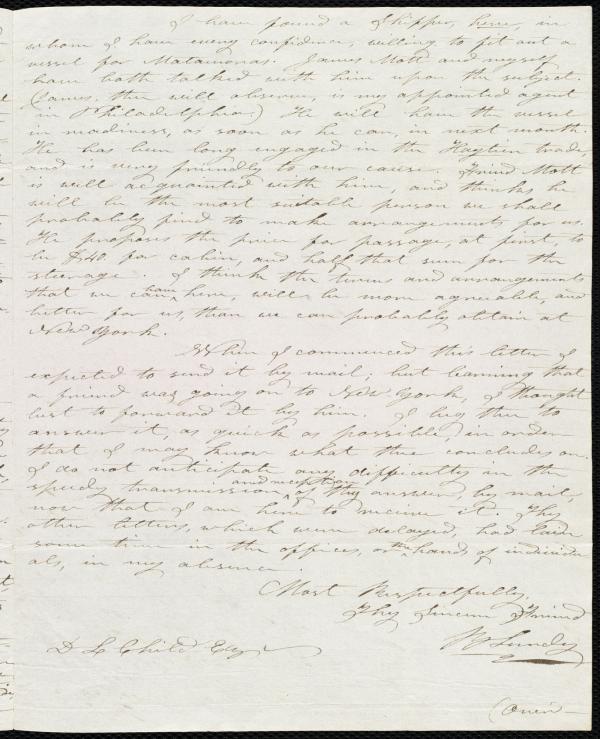 I have found a Shipper, here, in
whom I have every confidence, willing to fit out a
vessel for Matamoras. James Mott and myself
have both talked with him upon the subject.
(James, thee will observe, is my appointed agent
in Philadelphia.) He will have the vessel
in readiness, as soon as he can, in next month.
He has been long engaged in the Haytien trade,
and is very friendly to our cause. Friend Mott
is well acquainted with him, and thinks he
will be the most suitable person we shall
probably find to make arrangements for us.
He proposes the price for passage, at first, to
be $40. for cabin, and half that sum for the
steerage. I think the terms and arrangements
that we can have here, will be more agreeable, and
better for us, than we can probably obtain at
New York.
When I commenced this letter I
expected to send it by mail; but learning that
a friend was going on to New York, I thought
best to forward it by him. I beg thee to
answer it, as quick as possible, in order
that I may know what thee concludes on.
I do not anticipate any difficulty in the
speedy transmission and reception of thy answer, by mail,
now that I am here to receive it. Thy
other letters, which were delayed, had lain
some time in the offices, or the hands of individu
als, in my absence.
Most Respectfully,
Thy Sincere Friend
B Lundy
D L Child Esqr
(Over